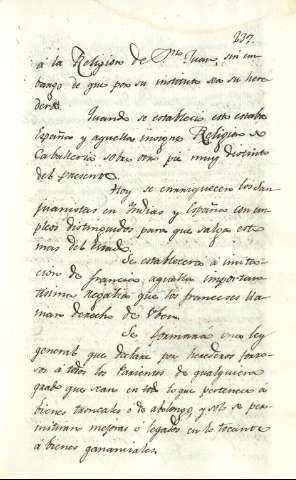 237.
á la Religion de Sn. Juan, sin em
bargo de que por su instituto sea su here
dera.
Quando se establecio esto estaba
España y aquella insigne Religion de
Caballeria sobre otro pie muy distinto
del presente.
Hoy se enriquecen los San
juanistas en Indias y España con em
pleos distinguidos para que salga este
mas del Estado.
Se establecerá á imita
cion de francia aquella importan
tisima regalia que los franceses lla
man derecho de
Se formara una ley
general que declare por herederos forzo
sos á todos los Parientes de qualquiera
grado que sean en todo lo que pertenece á
bienes troncales ó de abolengo, y solo se per
mitiran mejoras ó legados en lo tocante
á bienes gananciales.